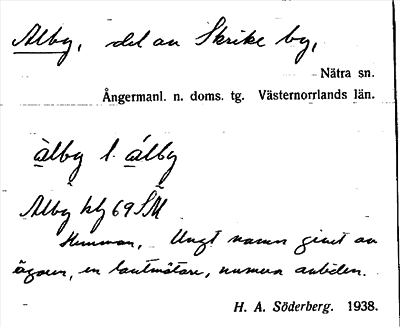 Alby, del av Skrike by,
Nätra sn.
Ångermanl. n. doms. tg. Västernorrlands län.
àlby l. álby
Alby hlg 69 SM
Hemman, Ungt namn givet av
ägaren, en lantmätare, numera avliden.
H. A. Söderberg. 1938.